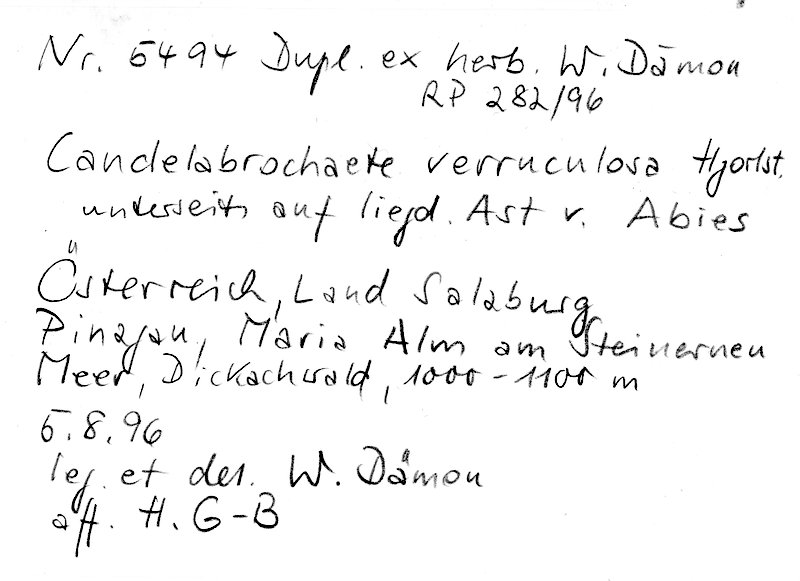 Nr. 5494 Dupl. ex herb. W. Dämon
RP 282/96
Candelabrochaete verruculosa Hjortst.
unterseits auf liegd. Ast v. Abies
Österreich, Land Salzburg
Pinzgau, Maria Alm am Steinernen
Meer, Dickachwald, 1000-1100 m
5.8.96
leg. et det. W. Dämon
aff. H. G-B